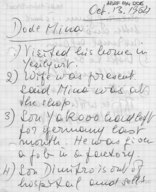 Oct. 13. 1964
Dode Mina
1) Visited his home in
2) Wife was present
said Mina was at
the shop.
3) Son had left
for Germany last
month. He was given
a job in a factory.
4) Son Dimitro is out of
hospital and sells